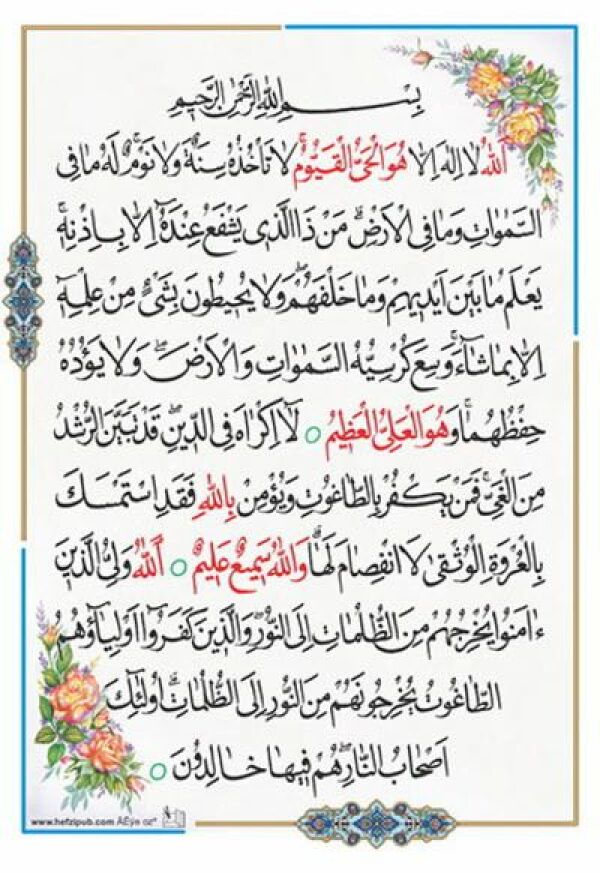 بِسْمِ اللهِ الرَّحْمٰنِ الرَّحيمِ
اَللهُ لا اِلٰهَ اِلّا هُوَ الْحَيُّ الْقَيُّومُ لا تَأْخُذُهُ سِنَةٌ وَ لا نَوْمٌ لَهُ ما فِي
السَّمٰواتِ وَ ما فِي الْاَرْضِ مَنْ ذَا الَّذي يَشْفَعُ عِنْدَهُ اِلّا بِاِذْنِهِ
يَعْلَمُ ما بَيْنَ اَيْديهِمْ وَ ما خَلْفَهُمْ وَ لا يُحيطُونَ بِشَيْءٍ مِنْ عِلْمِهِ
اِلّا بِما شاءَ وَسِعَ كُرْسِيُّهُ السَّمٰواتِ وَ الْاَرْضَ وَ لا يَؤُدُهُ
حِفْظُهُما وَ هُوَ الْعَلِيُّ الْعَظيمُ ○ لا اِكْراهَ فِي الدّينِ قَدْ تَبَيَّنَ الرُّشْدُ
مِنَ الْغَيِّ فَمَنْ يَكْفُرْ بِالطّاغُوتِ وَ يُؤْمِنْ بِاللهِ فَقَدِ اسْتَمْسَكَ
بِالْعُرْوَةِ الْوُثْقىٰ لَا انْفِصامَ لَها وَ اللهُ سَميعٌ عَليمٌ ○ اَللهُ وَلِيُّ الَّذينَ
ءامَنُوا يُخْرِجُهُمْ مِنَ الظُّلُماتِ اِلَى النُّورِ وَ الَّذينَ كَفَرُوا اَوْلِياؤُهُمُ
الطّاغُوتُ يُخْرِجُونَهُمْ مِنَ النُّورِ اِلَى الظُّلُماتِ اُولٰئِكَ
اَصْحابُ النّارِ هُمْ فيها خالِدُونَ ○
www.hefzipub.com